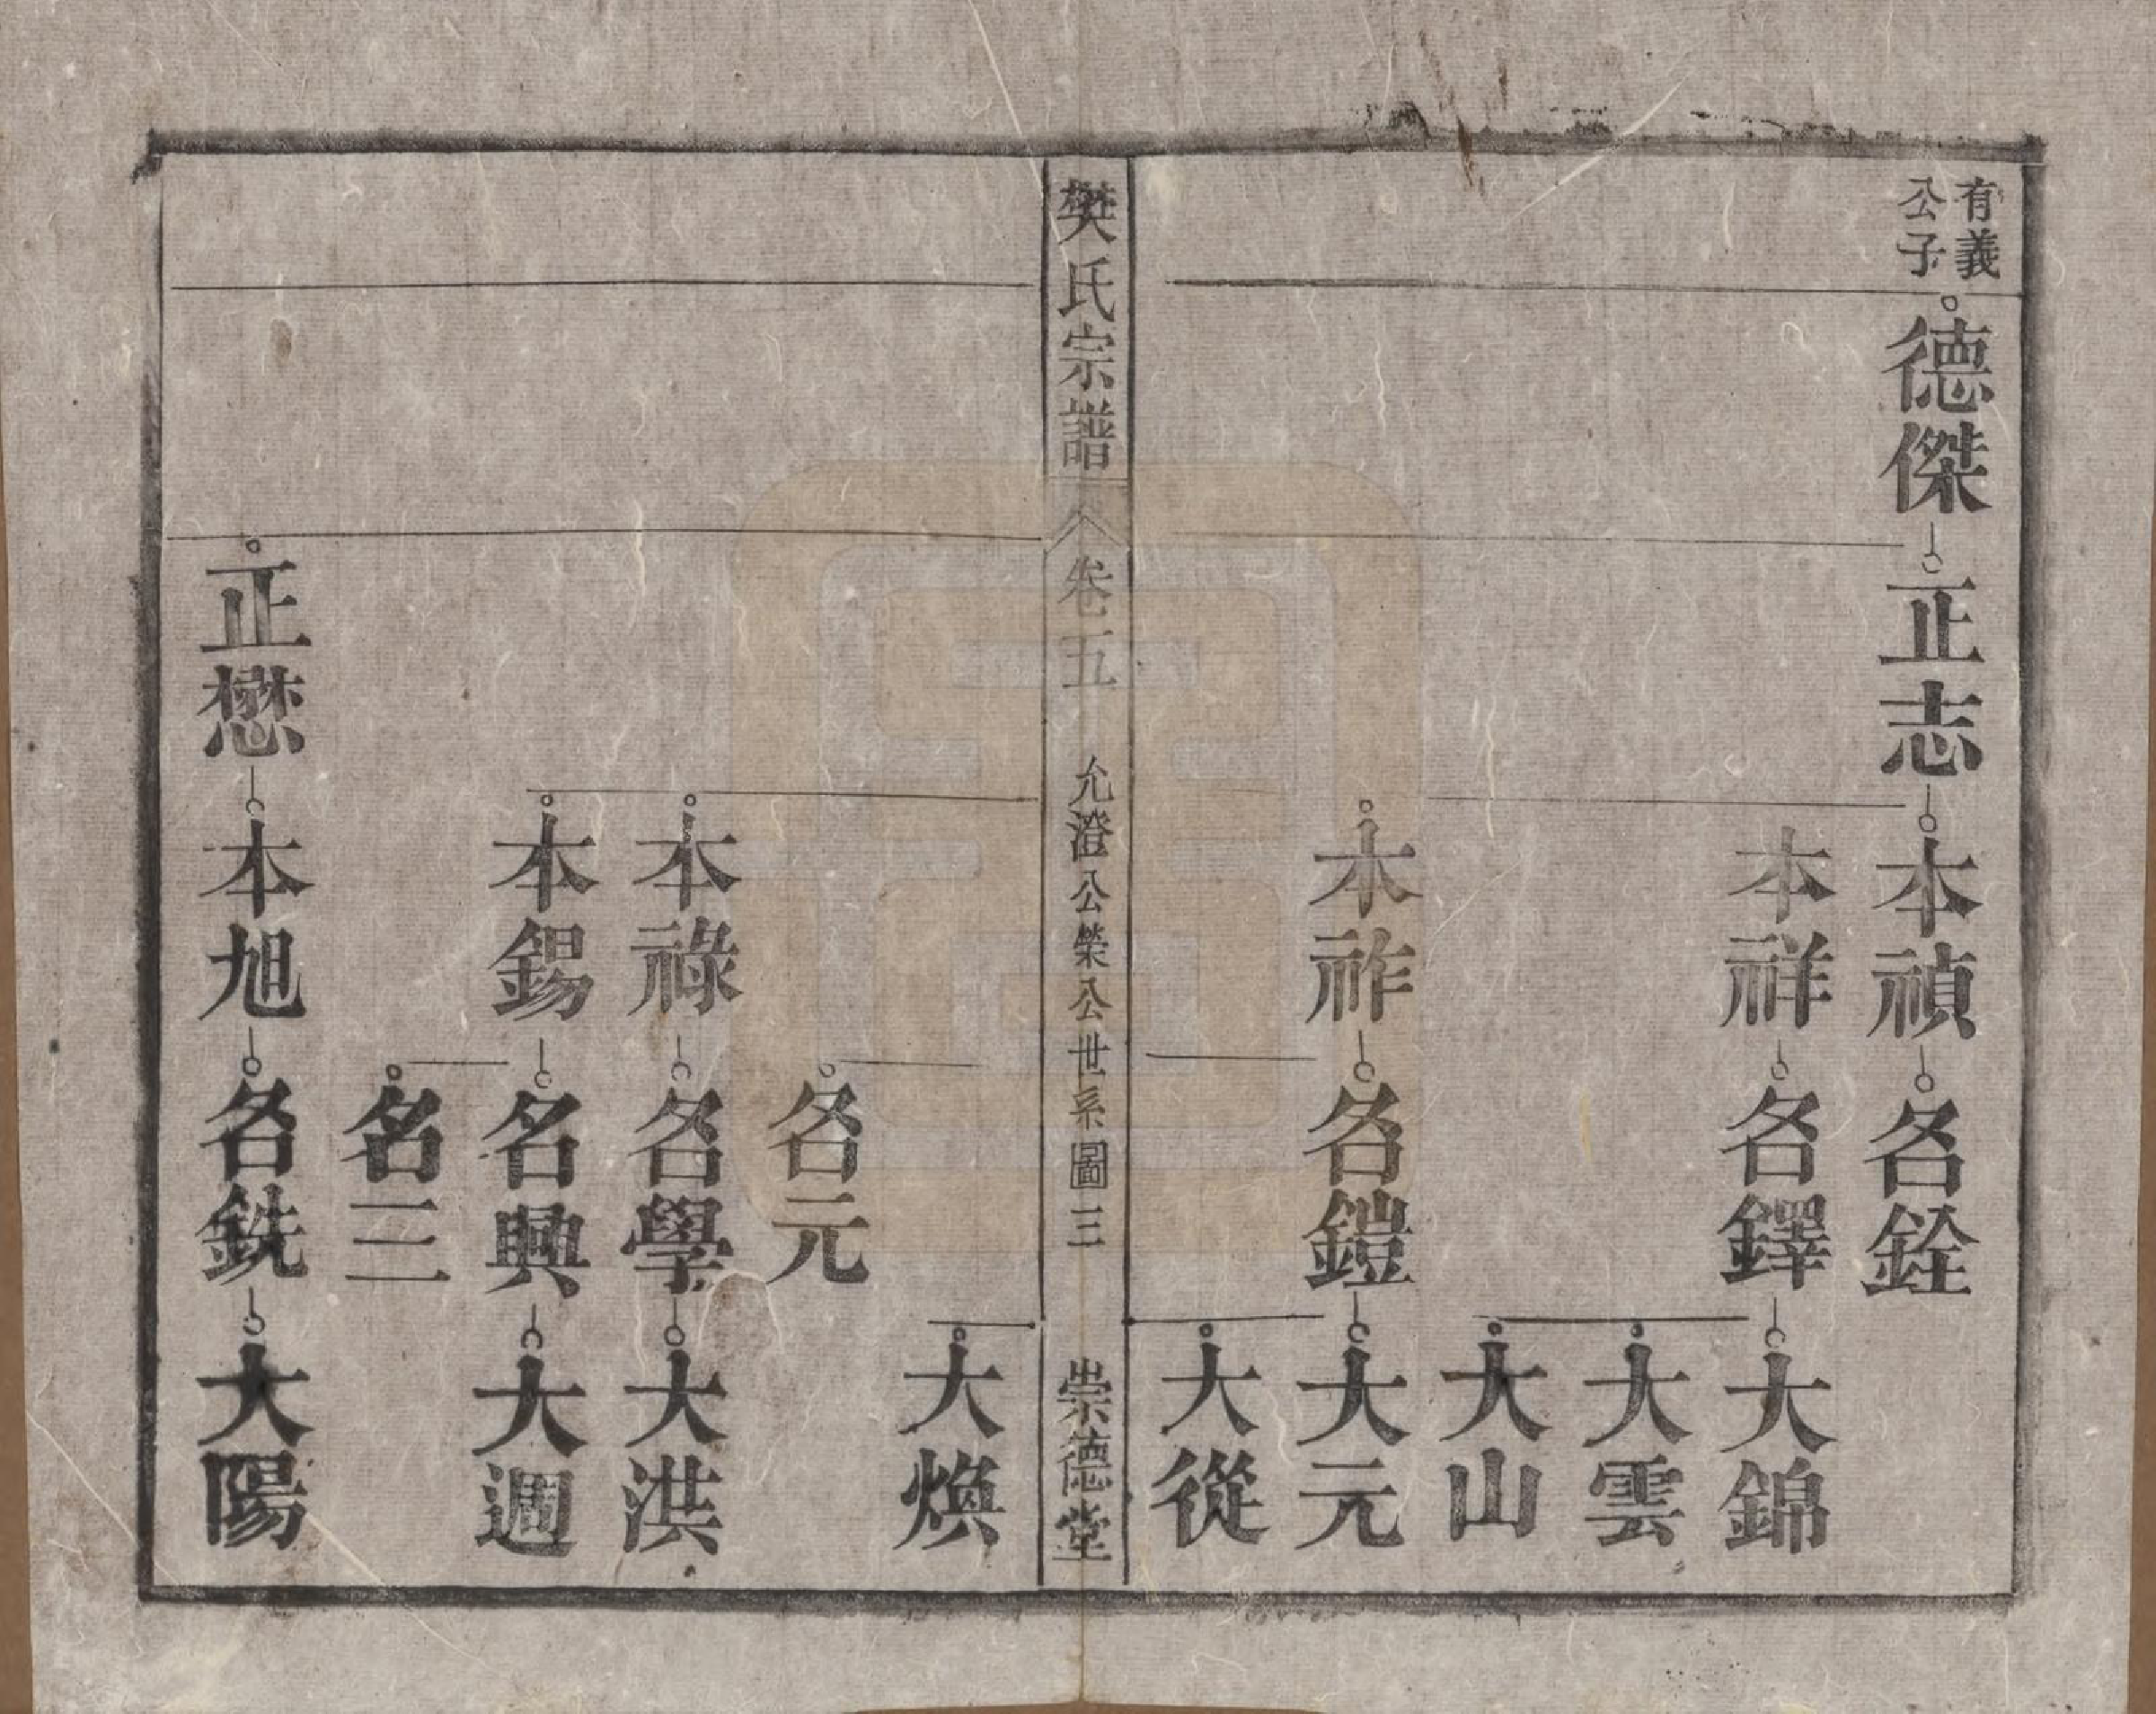 有義
公子
德傑
正志
本禎
名銓
本祥
名鐸
大錦
大雲
大山
本祚
名鎧
大元
大從
樊氏宗譜
卷五
允澄公榮公世系圖三
崇德堂
大煥
名元
本祿
名學
大洪
本錫
名興
大週
名三
正懋
本旭
名銑
大陽